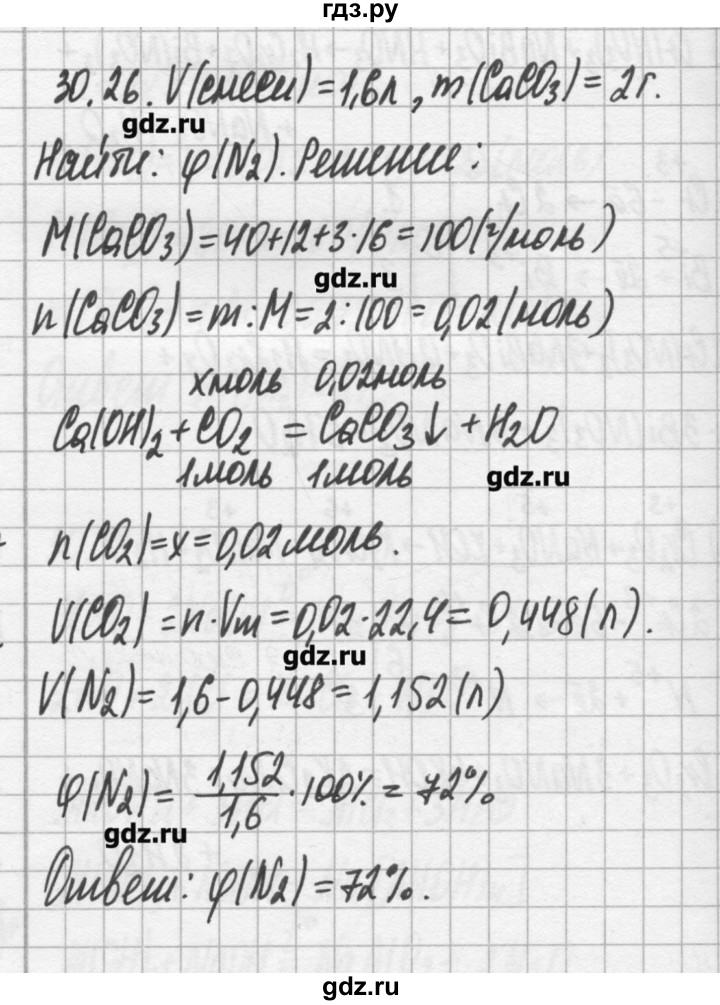 гдз.ру
30.26. V(смеси)=1,6л, m(CaCO₃)=2г.
gdz.ru
Найти: φ(N₂). Решение:
M(CaCO₃)=40+12+3·16=100(г/моль)
gdz.ru
n(CaCO₃)=m:M=2:100=0,02(моль)
xмоль 0,02моль
Ca(OH)₂+CO₂=CaCO₃↓+H₂O
1моль 1моль
gdz.ru
n(CO₂)=x=0,02моль.
V(CO₂)=n·Vm=0,02·22,4=0,448(л).
gdz.ru
V(N₂)=1,6-0,448=1,152(л)
φ(N₂)=1,152/1,6·100%=72%
gdz.ru
Ответ: φ(N₂)=72%.
gdz.ru